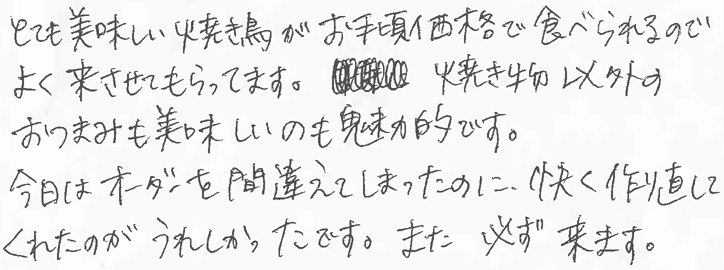 とても美味しい火焼き鳥がお手頃価格で食べられるので
よく来させてもらってます。 焼き物以外の
おつまみも美味しいのも魅力的です。
今日はオーダンを間違えてしまったのに、快く作り直して
くれたのがうれしかったです。また必ず来ます。